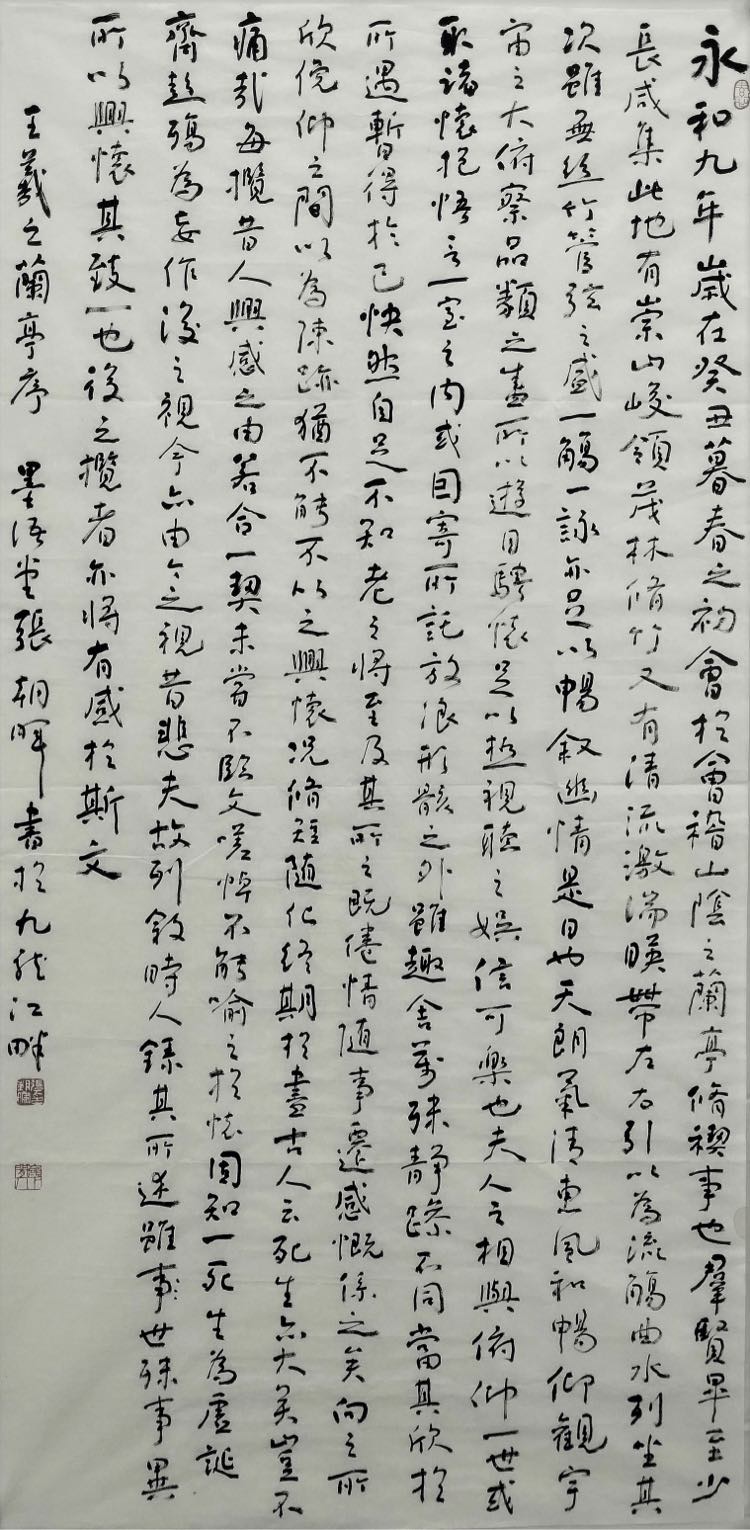 永和九年歲在癸丑暮春之初會於會稽山陰之蘭亭脩禊事也羣賢畢至少
長咸集此地有崇山峻領茂林脩竹又有清流激湍暎帶左右引以為流觴曲水列坐其
次雖無絲竹管弦之盛一觴一詠亦足以暢叙幽情是日也天朗氣清惠風和暢仰觀宇
宙之大俯察品類之盛所以遊目騁懷足以極視聽之娛信可樂也夫人之相與俯仰一世或
取諸懷抱悟言一室之内或因寄所託放浪形骸之外雖趣舍萬殊静躁不同當其欣於
所遇暫得於己快然自足不知老之將至及其所之既倦情隨事遷感慨係之矣向之所
欣俛仰之間以為陳跡猶不能不以之興懷況脩短隨化終期於盡古人云死生亦大矣豈不
痛哉每攬昔人興感之由若合一契未嘗不臨文嗟悼不能喻之於懷固知一死生為虛誕
齊彭殤為妄作後之視今亦由今之視昔悲夫故列敘時人錄其所述雖事世殊事異
所以興懷其致一也後之攬者亦將有感於斯文
王羲之蘭亭序 墨語堂張朝暉書於九龍江畔